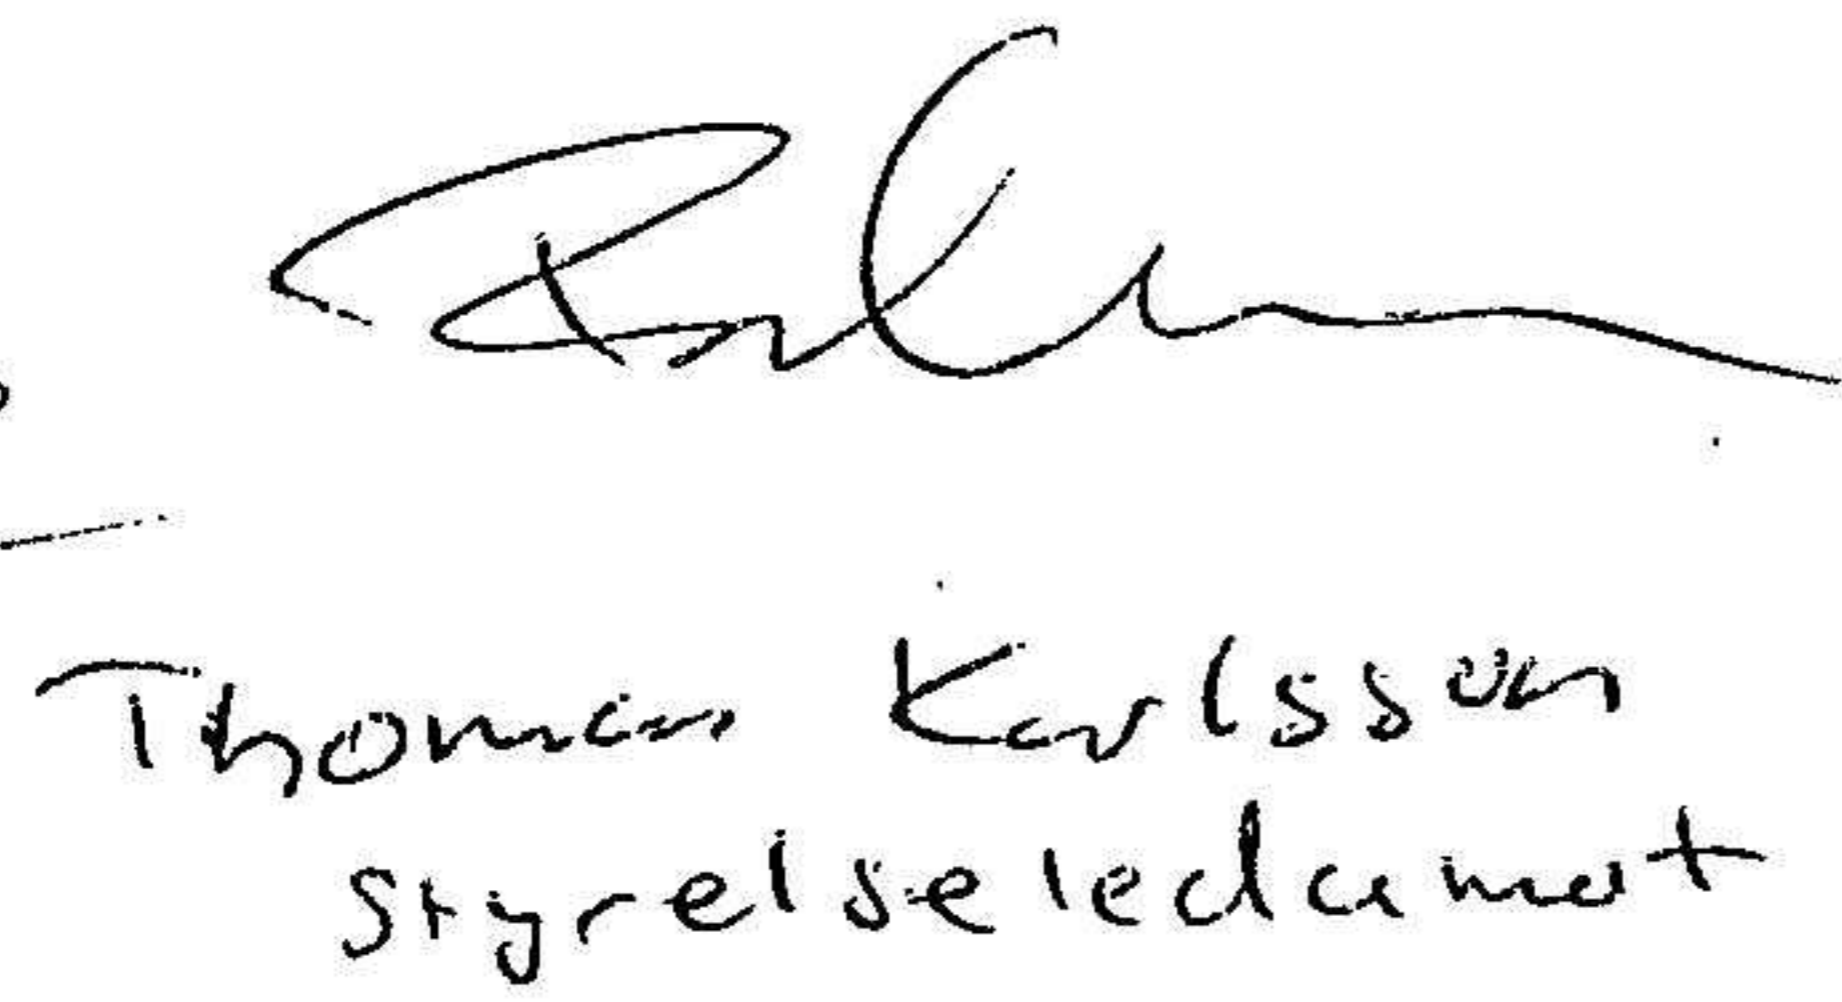 Thomas Karlsson
styrelseledamot